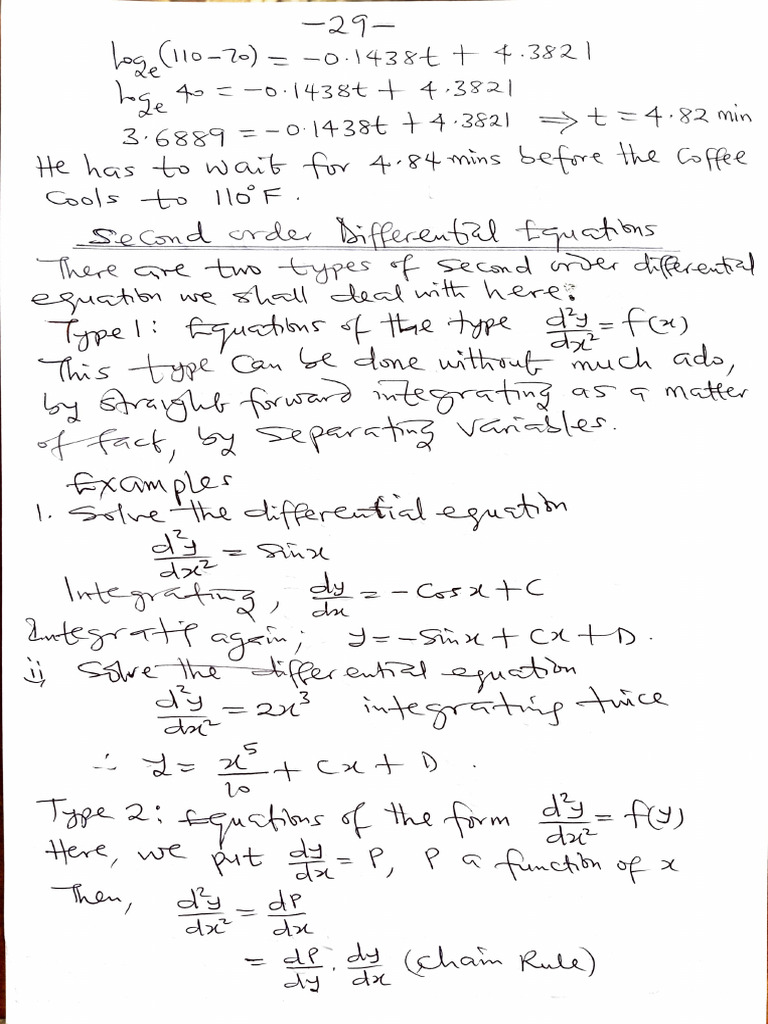 -29-
log_e(110-70) = -0.1438t + 4.3821
log_e 40 = -0.1438t + 4.3821
3.6889 = -0.1438t + 4.3821 ⟹ t = 4.82 min
He has to wait for 4.84 mins before the coffee
cools to 110°F.
Second order Differential Equations
There are two types of second order differential
equation we shall deal with here:
Type 1: Equations of the type d²y/dx² = f(x)
This type can be done without much ado,
by straight forward integrating as a matter
of fact, by separating variables.
Examples
1. Solve the differential equation
d²y/dx² = sinx
Integrating, dy/dx = -cosx + C
Integrate again; y = -sinx + Cx + D.
ii, Solve the differential equation
d²y/dx² = 2x³ integrating twice
∴ y = x⁵/10 + Cx + D.
Type 2: Equations of the form d²y/dx² = f(y)
Here, we put dy/dx = P, P a function of x
Then, d²y/dx² = dP/dx
= dP/dy . dy/dx (Chain Rule)